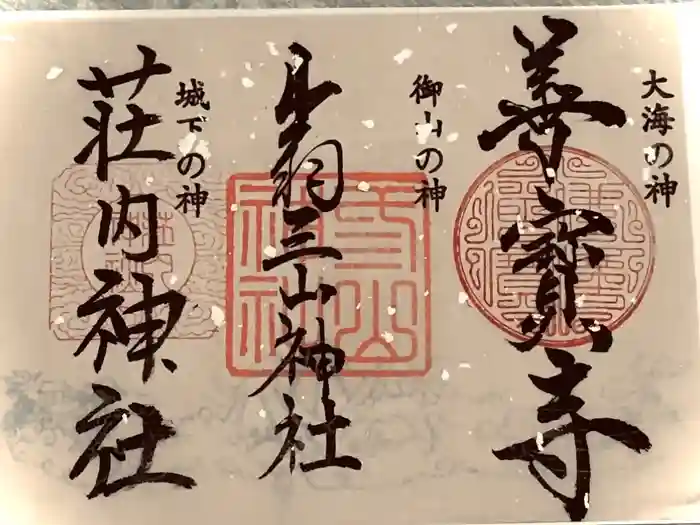 大海の神
善寳寺
御山の神
羽三山神社
城下の神
荘内神社